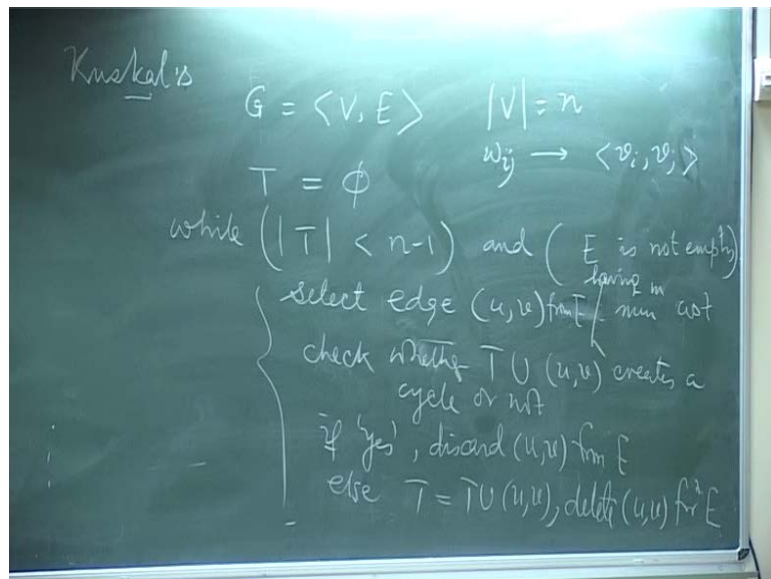 Kruskal's
G = <V, E> |V| = n
w_ij → <v_i, v_j>
T = ϕ
while (|T| < n-1) and (E is not empty)
having
select edge (u,v) from E min cost
check whether T ∪ (u,v) creates a
cycle or not
if 'yes', discard (u,v) from E
else T = T ∪ (u,v), delete (u,v) from E